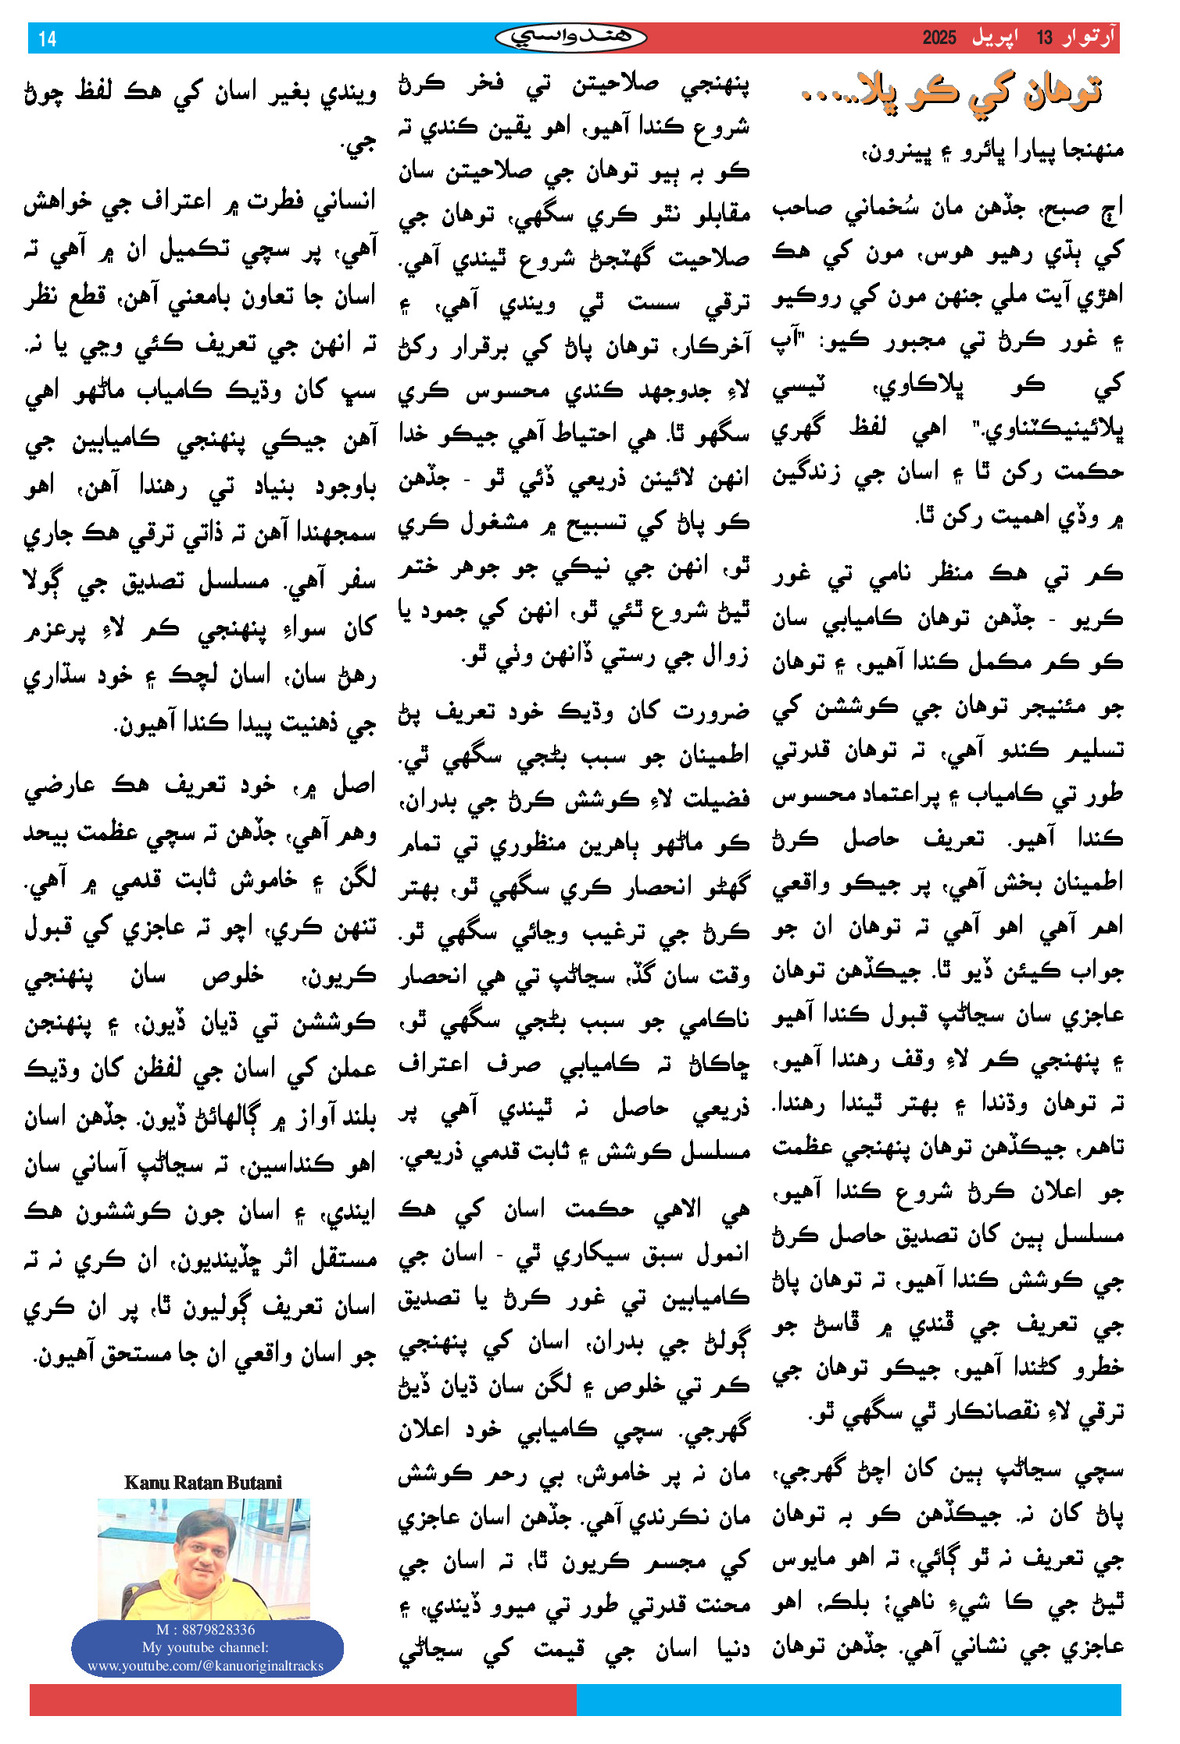 آرتوار 13 اپريل 2025
هندواسي
14
توهان کي ڪو ڀلا.....
منهنجا پيارا ڀائرو ۽ ڀينرون،
اڄ صبح، جڏهن مان سُخماني صاحب
کي ٻڌي رهيو هوس، مون کي هڪ
اهڙي آيت ملي جنهن مون کي روڪيو
۽ غور ڪرڻ تي مجبور ڪيو: "آپ
کي ڪو ڀلاڪاوي، ٽيسي
ڀلائينيڪٽناوي." اهي لفظ گهري
حڪمت رکن ٿا ۽ اسان جي زندگين
۾ وڏي اهميت رکن ٿا.
ڪم تي هڪ منظر نامي تي غور
ڪريو - جڏهن توهان ڪاميابي سان
ڪو ڪم مڪمل ڪندا آهيو، ۽ توهان
جو مئنيجر توهان جي ڪوششن کي
تسليم ڪندو آهي، ته توهان قدرتي
طور تي ڪامياب ۽ پراعتماد محسوس
ڪندا آهيو. تعريف حاصل ڪرڻ
اطمينان بخش آهي، پر جيڪو واقعي
اهم آهي اهو آهي ته توهان ان جو
جواب ڪيئن ڏيو ٿا. جيڪڏهن توهان
عاجزي سان سڃاڻپ قبول ڪندا آهيو
۽ پنهنجي ڪم لاءِ وقف رهندا آهيو،
ته توهان وڌندا ۽ بهتر ٿيندا رهندا.
تاهم، جيڪڏهن توهان پنهنجي عظمت
جو اعلان ڪرڻ شروع ڪندا آهيو،
مسلسل ٻين کان تصديق حاصل ڪرڻ
جي ڪوشش ڪندا آهيو، ته توهان پاڻ
جي تعريف جي ڦندي ۾ ڦاسڻ جو
خطرو کڻندا آهيو، جيڪو توهان جي
ترقي لاءِ نقصانڪار ٿي سگهي ٿو.
سچي سڃاڻپ ٻين کان اچڻ گهرجي،
پاڻ کان نه. جيڪڏهن ڪو به توهان
جي تعريف نه ٿو ڳائي، ته اهو مايوس
ٿيڻ جي ڪا شيءِ ناهي؛ بلڪه، اهو
عاجزي جي نشاني آهي. جڏهن توهان
پنهنجي صلاحيتن تي فخر ڪرڻ
شروع ڪندا آهيو، اهو يقين ڪندي ته
ڪو به ٻيو توهان جي صلاحيتن سان
مقابلو نٿو ڪري سگهي، توهان جي
صلاحيت گهٽجڻ شروع ٿيندي آهي.
ترقي سست ٿي ويندي آهي، ۽
آخرڪار، توهان پاڻ کي برقرار رکڻ
لاءِ جدوجهد ڪندي محسوس ڪري
سگهو ٿا. هي احتياط آهي جيڪو خدا
انهن لائينن ذريعي ڏئي ٿو - جڏهن
ڪو پاڻ کي تسبيح ۾ مشغول ڪري
ٿو، انهن جي نيڪي جو جوهر ختم
ٿيڻ شروع ٿئي ٿو، انهن کي جمود يا
زوال جي رستي ڏانهن وٺي ٿو.
ضرورت کان وڌيڪ خود تعريف پڻ
اطمينان جو سبب بڻجي سگهي ٿي.
فضيلت لاءِ ڪوشش ڪرڻ جي بدران،
ڪو ماڻهو ٻاهرين منظوري تي تمام
گهڻو انحصار ڪري سگهي ٿو، بهتر
ڪرڻ جي ترغيب وڃائي سگهي ٿو.
وقت سان گڏ، سڃاڻپ تي هي انحصار
ناڪامي جو سبب بڻجي سگهي ٿو،
ڇاڪاڻ ته ڪاميابي صرف اعتراف
ذريعي حاصل نه ٿيندي آهي پر
مسلسل ڪوشش ۽ ثابت قدمي ذريعي.
هي الاهي حڪمت اسان کي هڪ
انمول سبق سيکاري ٿي - اسان جي
ڪاميابين تي غور ڪرڻ يا تصديق
ڳولڻ جي بدران، اسان کي پنهنجي
ڪم تي خلوص ۽ لگن سان ڌيان ڏيڻ
گهرجي. سچي ڪاميابي خود اعلان
مان نه پر خاموش، بي رحم ڪوشش
مان نڪرندي آهي. جڏهن اسان عاجزي
کي مجسم ڪريون ٿا، ته اسان جي
محنت قدرتي طور تي ميوو ڏيندي، ۽
دنيا اسان جي قيمت کي سڃاڻي
ويندي بغير اسان کي هڪ لفظ چوڻ
جي.
انساني فطرت ۾ اعتراف جي خواهش
آهي، پر سچي تڪميل ان ۾ آهي ته
اسان جا تعاون بامعني آهن، قطع نظر
ته انهن جي تعريف ڪئي وڃي يا نه.
سڀ کان وڌيڪ ڪامياب ماڻهو اهي
آهن جيڪي پنهنجي ڪاميابين جي
باوجود بنياد تي رهندا آهن، اهو
سمجهندا آهن ته ذاتي ترقي هڪ جاري
سفر آهي. مسلسل تصديق جي ڳولا
کان سواءِ پنهنجي ڪم لاءِ پرعزم
رهڻ سان، اسان لچڪ ۽ خود سڌاري
جي ذهنيت پيدا ڪندا آهيون.
اصل ۾، خود تعريف هڪ عارضي
وهم آهي، جڏهن ته سچي عظمت بيحد
لگن ۽ خاموش ثابت قدمي ۾ آهي.
تنهن ڪري، اچو ته عاجزي کي قبول
ڪريون، خلوص سان پنهنجي
ڪوششن تي ڌيان ڏيون، ۽ پنهنجن
عملن کي اسان جي لفظن کان وڌيڪ
بلند آواز ۾ ڳالهائڻ ڏيون. جڏهن اسان
اهو ڪنداسين، ته سڃاڻپ آساني سان
ايندي، ۽ اسان جون ڪوششون هڪ
مستقل اثر ڇڏينديون، ان ڪري نه ته
اسان تعريف ڳوليون ٿا، پر ان ڪري
جو اسان واقعي ان جا مستحق آهيون.
Kanu Ratan Butani
M : 8879828336
My youtube channel:
www.youtube.com/@kanuoriginaltracks